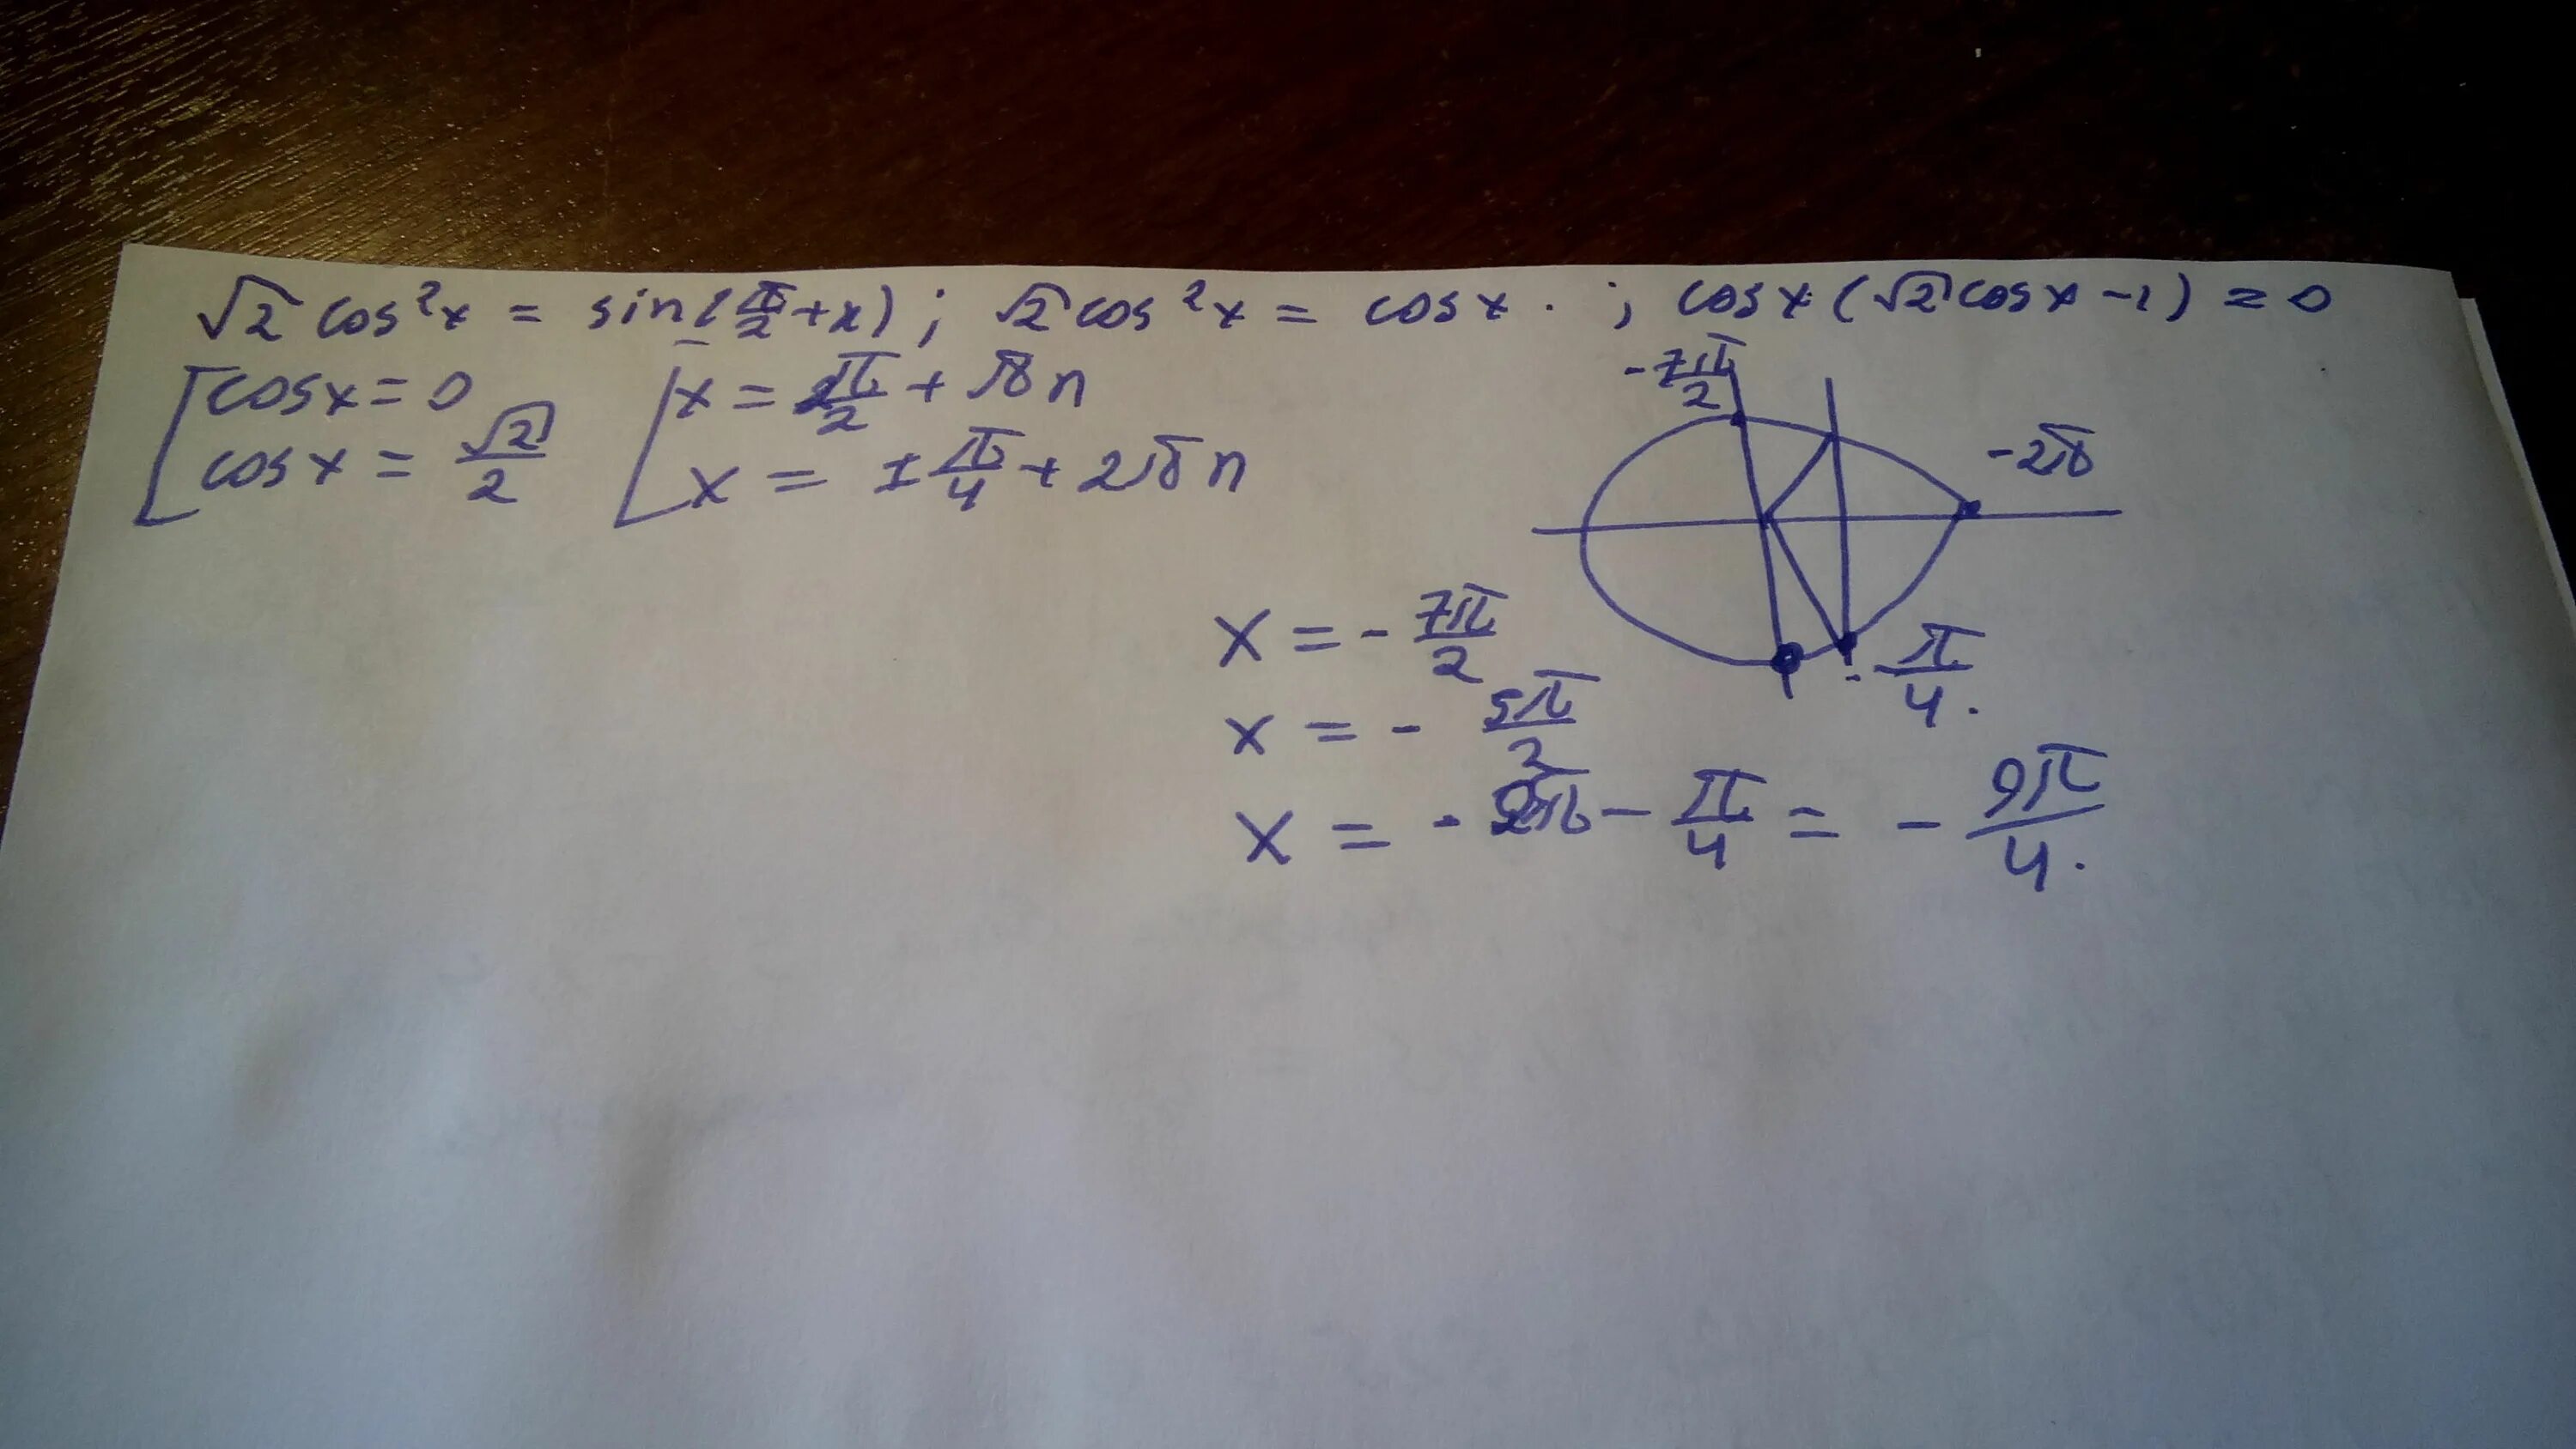 √2 cos²x = sin(π/2 + x) ; √2 cos²x = cosx . ; cosx (√2 cosx - 1) = 0
[cosx = 0 [x = π/2 + πn
cosx = √2/2 x = ± π/4 + 2πn
-7π/2
-2π
- π/4.
x = - 7π/2
x = - 5π/2
x = - 2π - π/4 = - 9π/4.